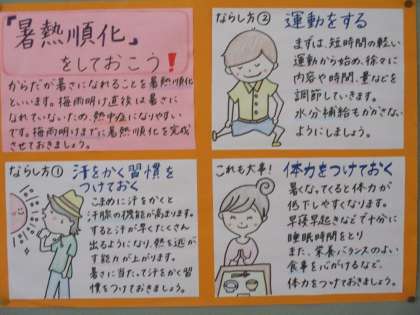 「暑熱順化」
をしておこう!
からだが暑さになれることを暑熱順化
といいます。梅雨明け直後は暑さに
なれていないため、熱中症になりやすい
です。梅雨明けまでに暑熱順化を完成
させておきましょう。
ならし方①
汗をかく習慣を
つけておく
こまめに汗をかくと
汗腺の機能が高まります。
すると汗が早くたくさん
出るようになり、熱を逃が
す能力が上がります。
暑さに当たって汗をかく習
慣をつけておきましょう。
ならし方②
運動をする
まずは、短時間の軽い
運動から始め、徐々に
内容や時間、量などを
調節していきます。
水分補給もかかさない
ようにしましょう。
これも大事!
体力をつけておく
暑くなってくると体力が
低下しやすくなります。
早寝早起きなどで十分に
睡眠時間をとり
また、栄養バランスのよい
食事を心がけるなど、
体力をつけておきましょう。